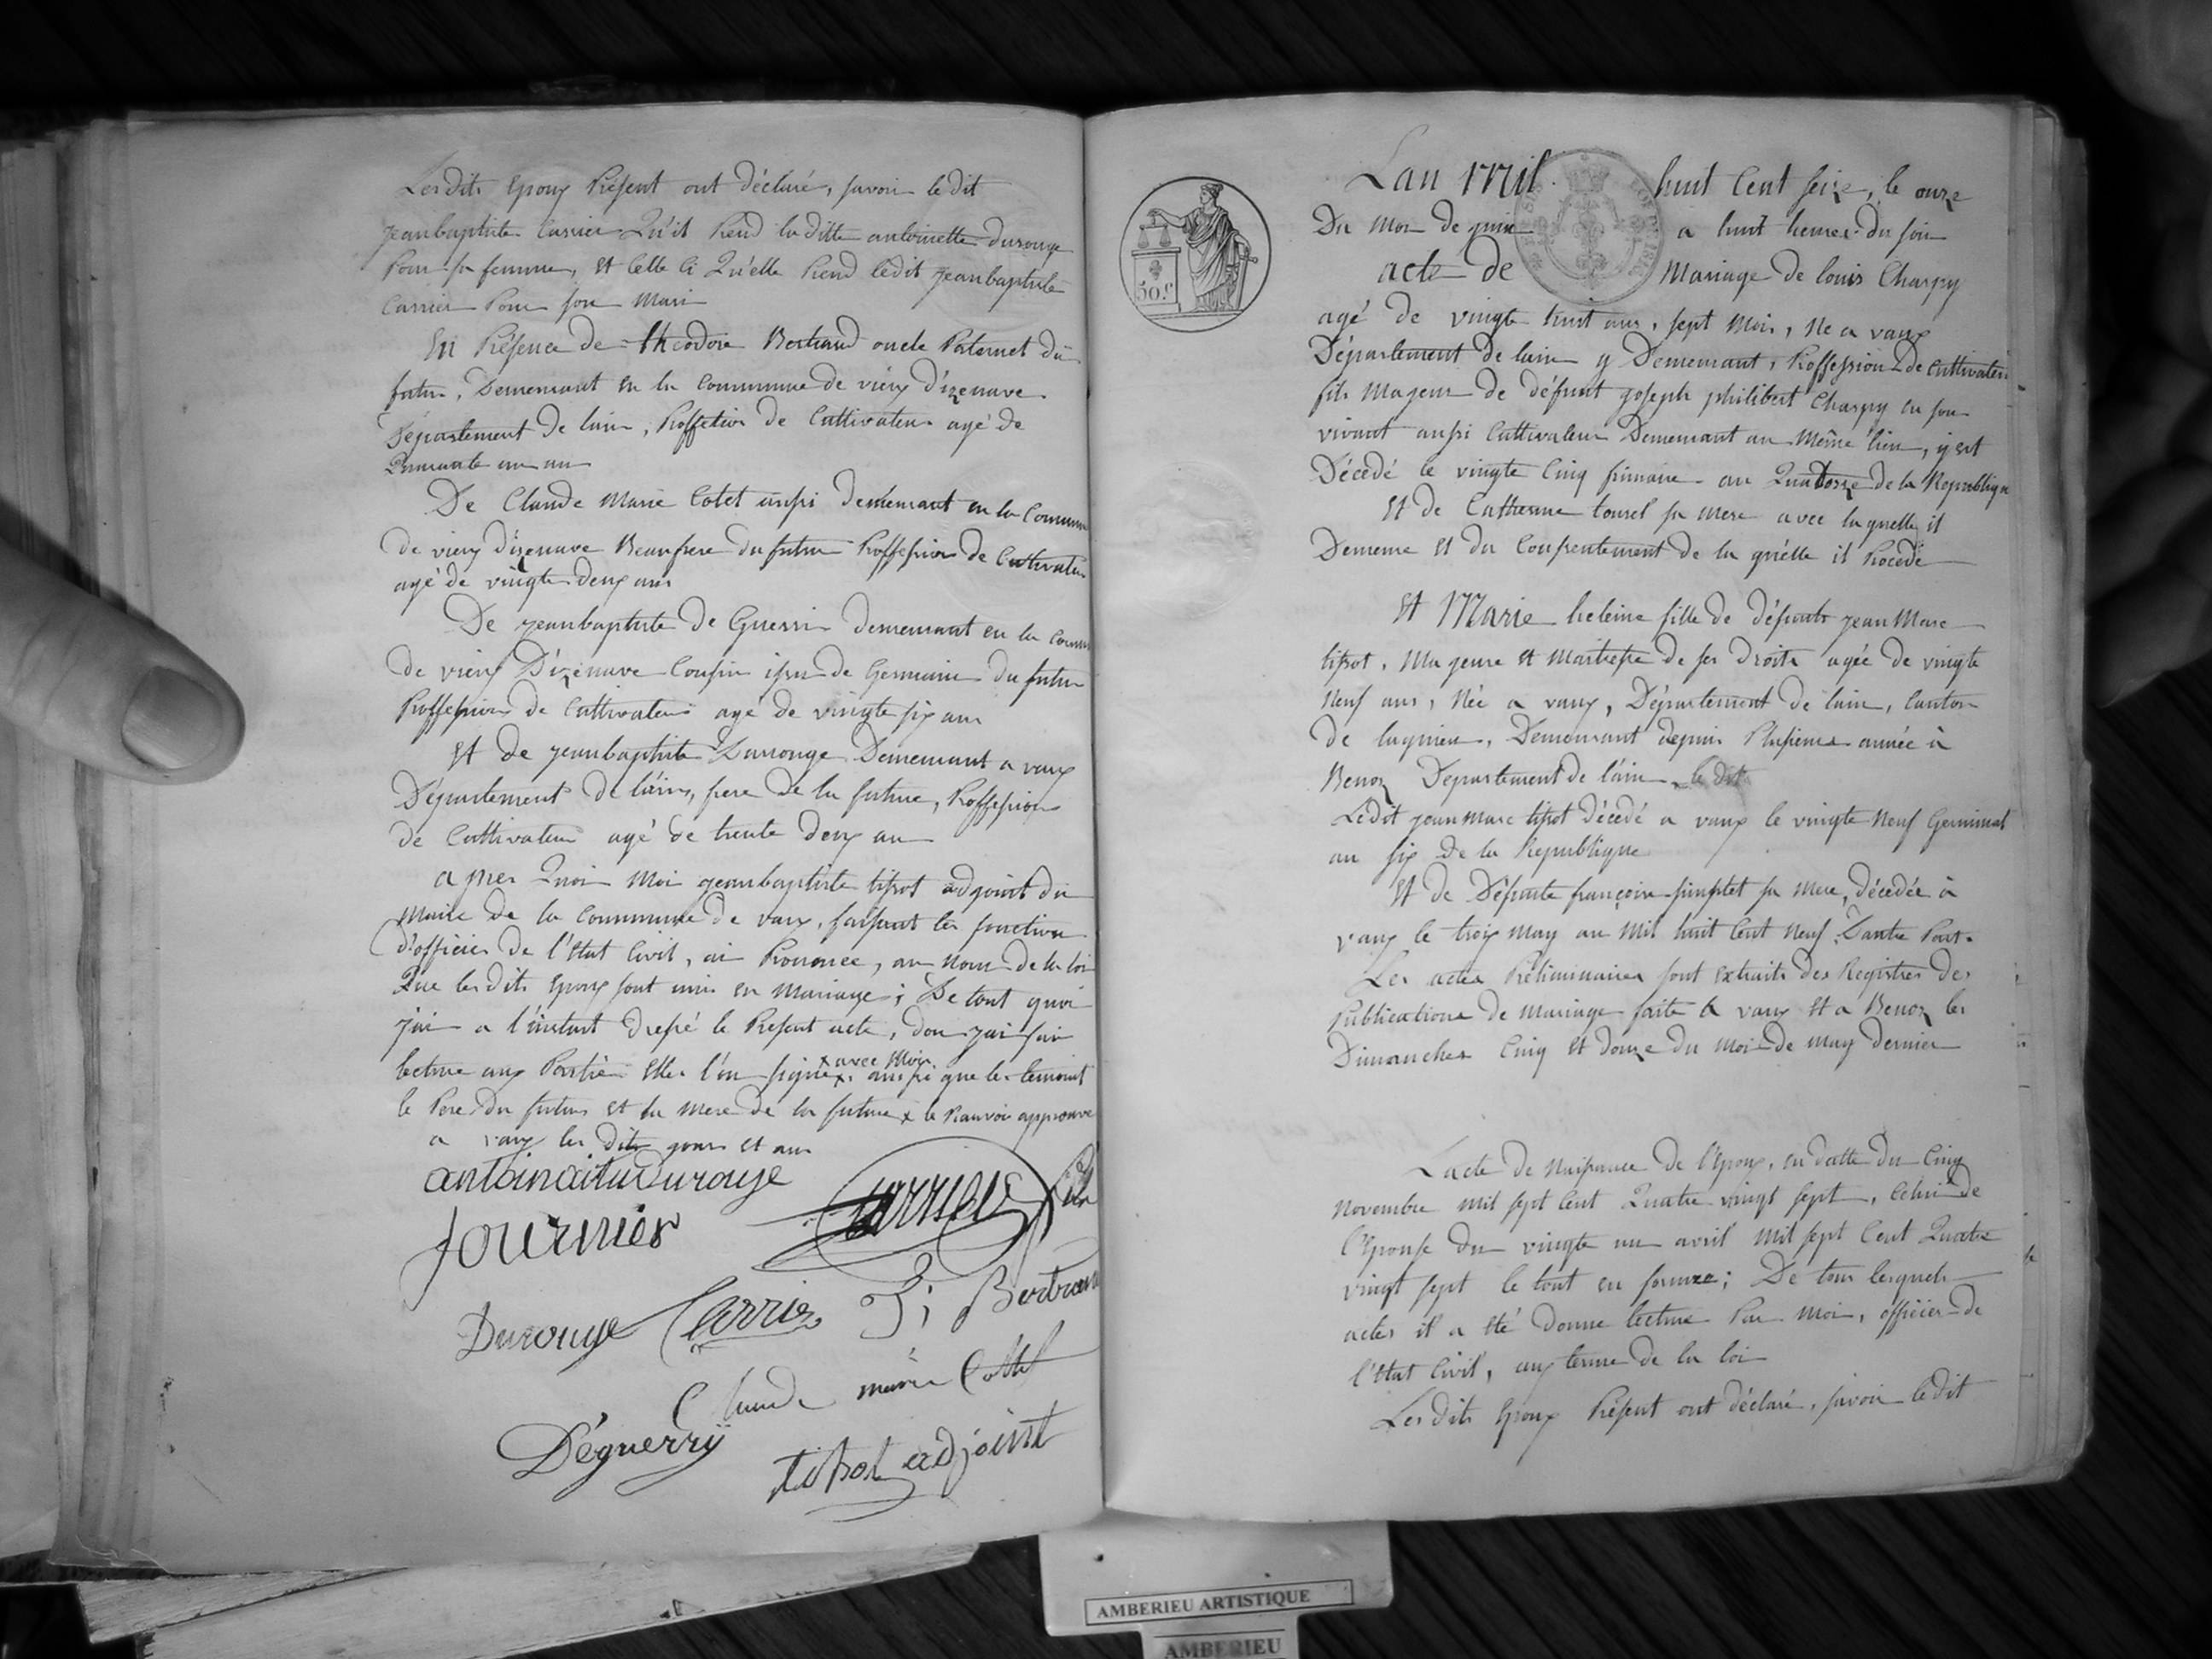 Les dits Epoux Présent ont déclaré, savoir ledit
jeanbaptiste Carrier Qu'il Prend laditte antoinette durouge
Pour sa femme, Et Celle Ci Qu'elle Prend ledit jeanbaptiste
Carrier Pour son Mari
En Présence de theodore Bertrand oncle Paternel du
futur, Demeurant en la Commune de vieux d'izenave
Département de lain, Proffetion de Cultivateur agé de
Quarante un an
De Claude Marie Cotet aussi demeurant en la Commune
de vieux d'izenave Beaufrere du futur Proffession de Cultivateur
agé de vingte deux ans
De jeanbaptiste de Guerri demeurant en la Comm
de vieux D'izenave Cousin issu de Germain du futur
Proffession de Cultivateur agé de vingte six ans
Et de jeanbaptiste Durouge Demeurant a vaux
Département de l'ain, frere de la future, Proffession
de Cultivateur agé de trente deux an
apres Quoi Moi jeanbaptiste tissot adjoint du
Maire de la Commune de vaux, faissant les fonction
d'officier de l'Etat Civil, ai Prononcé, au Nom de la loi
Que lesdits Epoux sont unis en Mariage; De tout quoi
j'ai a l'instant dressé le Présent acte, don j'ai fait
lecture aux Partie Elles l'on signé x avec Moi x aussi que les temoint
le Pere du futur et la Mere de la future x le Ranvoi approuvé
a vaux les dits jours et an
antoinaitte Durouge
Carrier
fournier
Durouge Carrier Bertrand
Claude marie Cottet
Déguerry
tissot adjoint
50.C
Lan Mil huit Cent seize, le onze
Du Moi de juin a huit heures du soir
acte de Mariage de louis Charpy
agé de vingte huit ans, sept Mois, Né a vaux
Département de lain y Demeurant, Proffession de Cultivateur
fils Majeur de défunt joseph philibert Charpy en son
vivant aussi Cultivateur Demeurant au Même lieu, y est
Décédé le vingte Cinq frimaire an Quatorze de la Republique
Et de Catherine tourel sa Mere avec laquelle il
Demeure Et du Consentement de la quélle il Procède
Et Marie heleine fille de défunt jean Marc
tissot, Majeure et Maitresse de ses droits agée de vingte
Neuf ans, Née a vaux, Département de lain, Canton
de lagnieu, Demeurant depuis Plusieurs année à
Benoz Departement de l'ain le dit
Ledit jean Marc tissot décédé a vaux le vingte Neuf Germinal
an six de la Republique
Et de Défunte françoise sa Mere, décedée à
vaux le trois May an Mil huit Cent Neuf. Dautre Part.
Les actes Préliminaires sont extraits des Registres des
Publications de Mariage faite a vaux Et a Benoz les
Dimanches Cinq Et douze du Moi de May dernier
Lacte de Naissance de l'Epoux, en datte du Cinq
Novembre Mil sept Cent Quatre vingt sept, Celui de
l'Epouse du vingte un avril Mil sept Cent Quatre
vingt sept le tout en forme; De tous lesquels
actes il a Eté donne lecture Par Moi, officier de
l'Etat Civil, aux terme de la loi
Les dits Epoux Présent ont déclaré, savoir ledit
AMBERIEU ARTISTIQUE
AMBERIEU